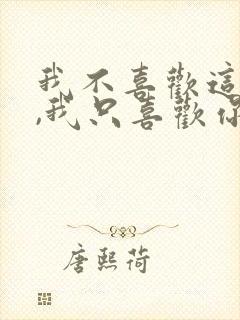 我不喜歡這
,我只喜歡你
唐熙荷